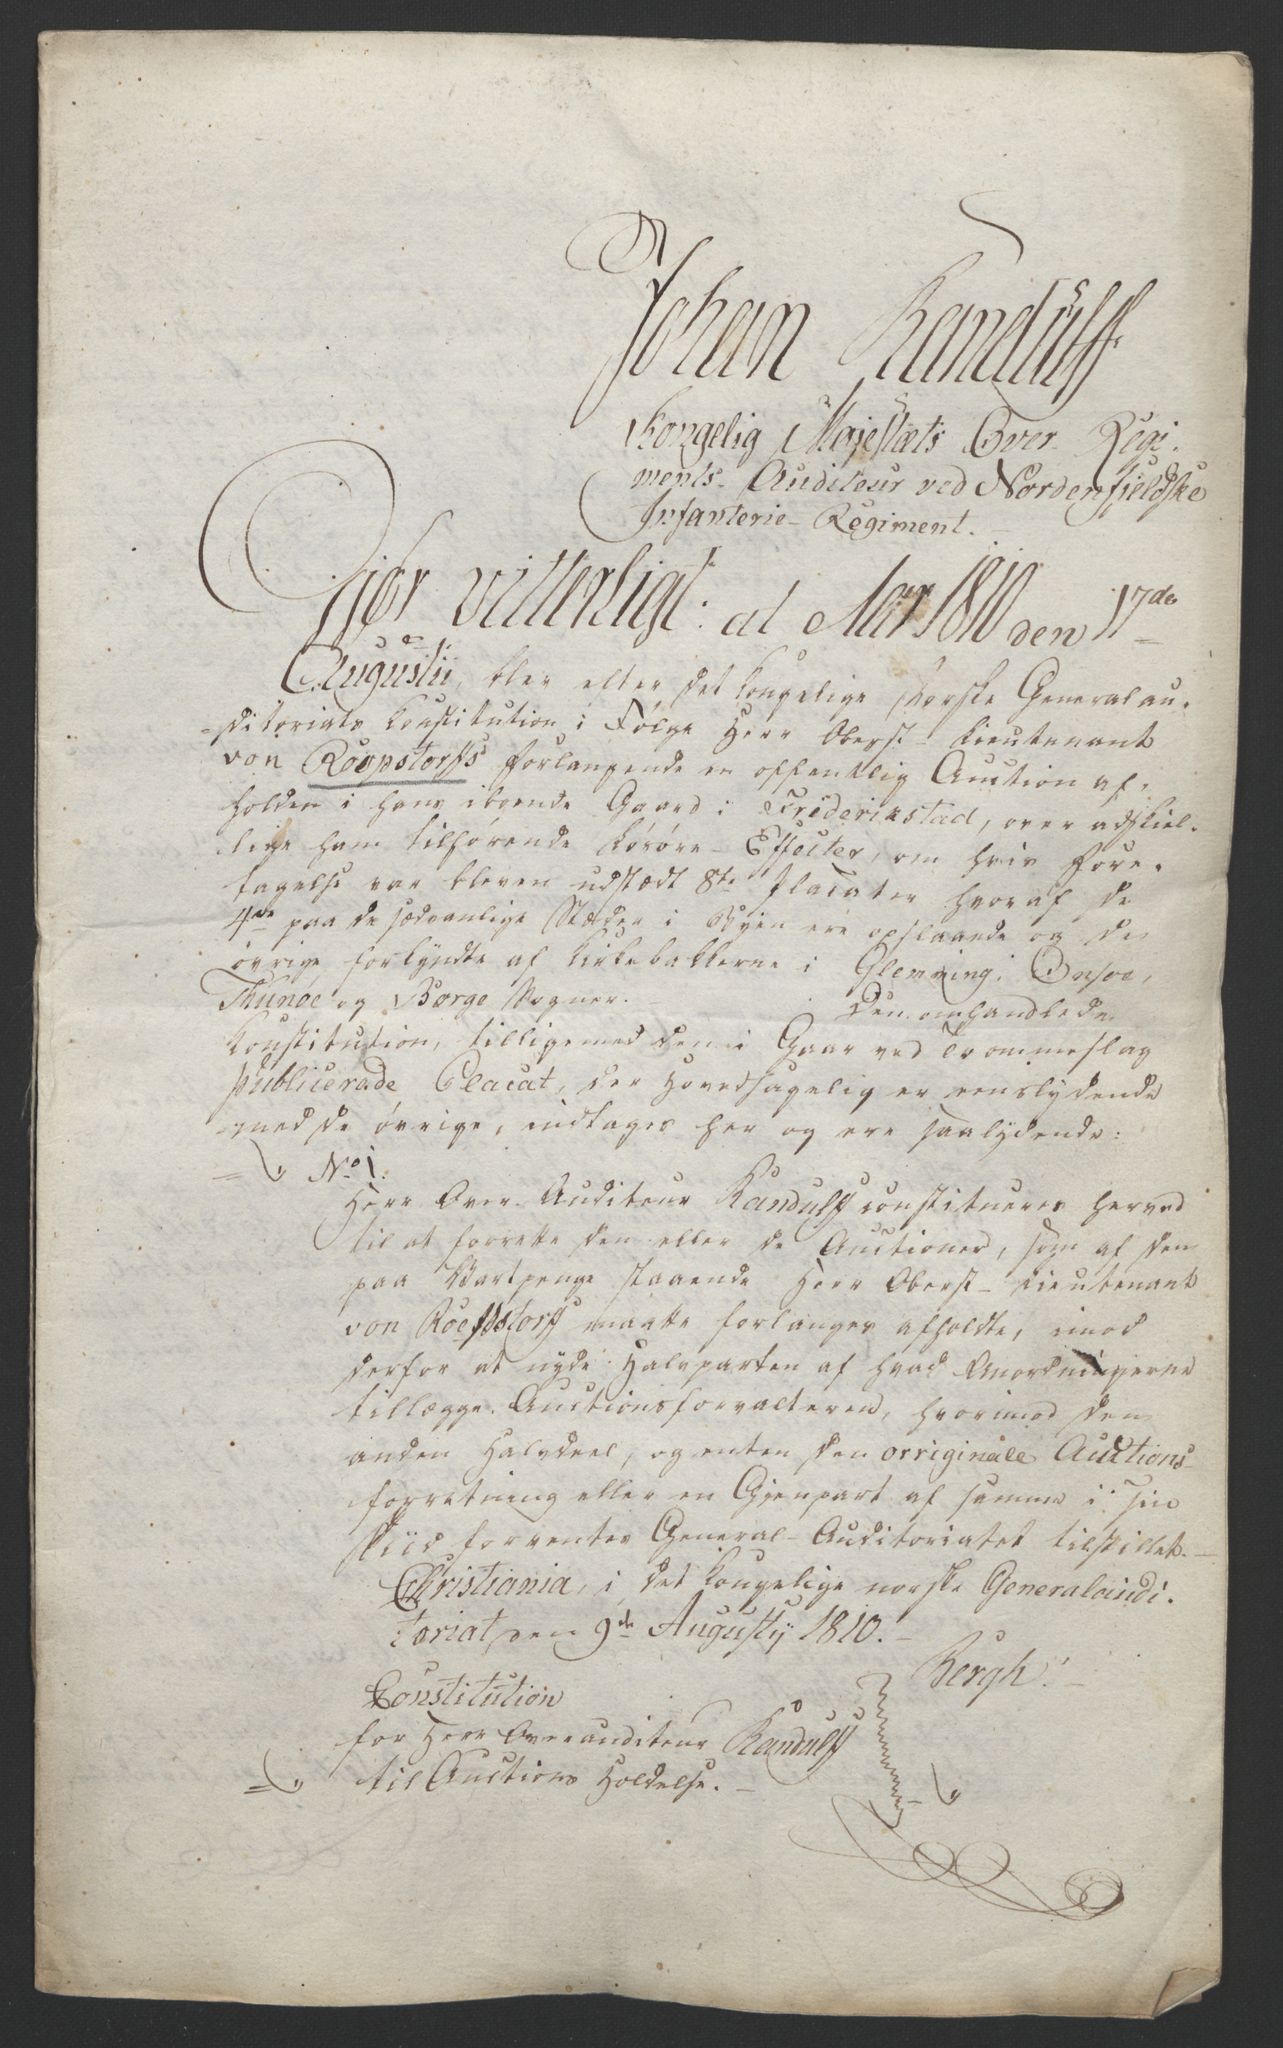 Johan Randulff
Kongelig Majestæts Over Regi-
ments-Auditeur ved Nordenfjeldske
Infanterie-Regiment.
Gjør vitterligt: at Aar 1810 den 17de
Augustii, blev efter det kongelige norske Generalau-
ditoriats Constitution i Følge Herr Oberst-Lieutenant
von Roepstorffs forlangende en offentlig Auction af-
holden i hans iboende Gaard i Frederikstad, over adskiel-
lige ham tilhørende Løsøre-Effecter, om hvis fore-
tagelse var bleven udstædt 8te Placater hvoraf de
4re paa de sædvanlige Stæder i Byen ere opslaaede og de
øvrige forkyndte af Kirkebakkerne i Glemming, Onsøe,
Thunøe og Borge Sogner. — Den omhandlede
Constitution, tilligemed den i Gaar ved Trommeslag
publicerade Placat, der Hovedsagelig er eenslydende
med de øvrige, indtages her og ere saalydende:
No 1.
Herr Over-Auditeur Randulff constitueres herved
til at forrette den eller de Auctioner, som af den
paa Vartpenge staaende Herr Oberst-Lieutenant
von Roepstorff maatte forlanges afholdte, imod
derfor at nyde Halvparten af hvad Anordningerne
tillægge Auctionsforvalteren, hvorimod den
anden Halvdeel, og enten den orriginale Auctions-
forretning eller en Gjenpart af samme i sin
Tiid forventes General-Auditoriatet tilstillet. —
Christiania, i det kongelige norske Generalaudi-
toriat, den 9de Augustij 1810. —
Bergh.
Constitution
for Herr Overauditeur Randulff
til Auctions Holdelse. —